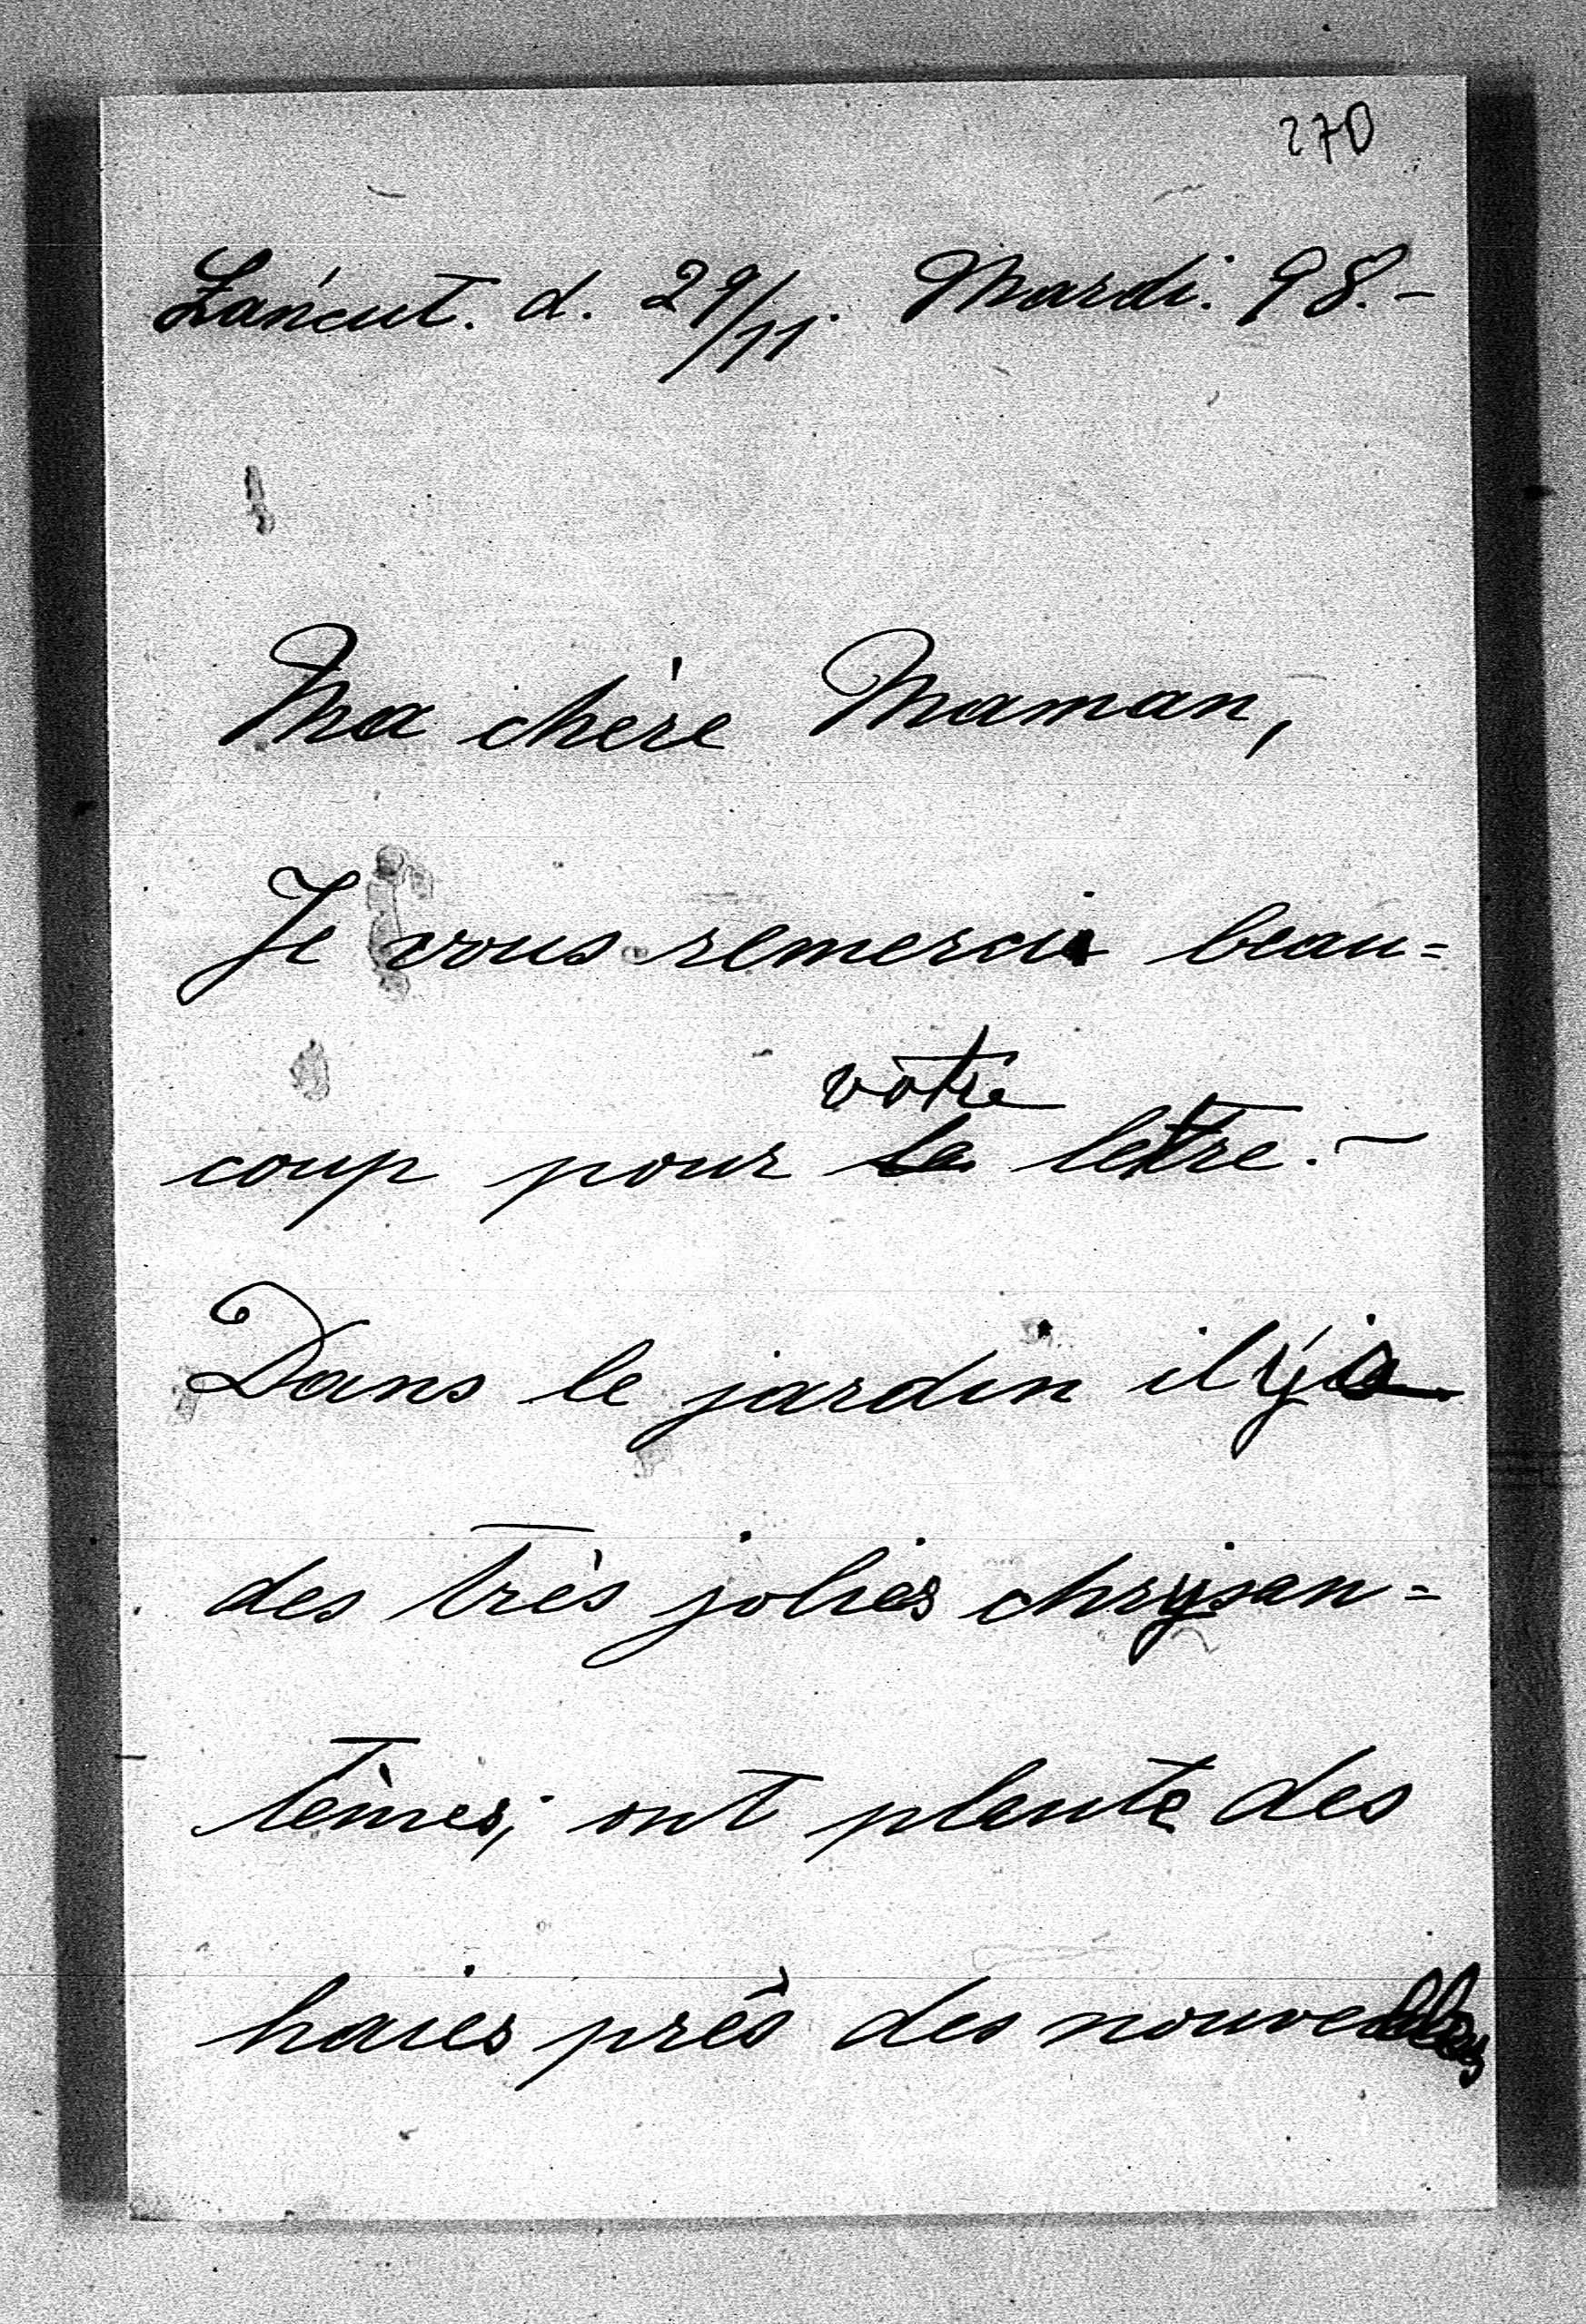 270
Łańcut. d. 29/11. Mardi. 98.-
Ma chère Maman,
Je vous remerci beau=
votre
coup pour la lettre.-
Dans le jardin il y a
des très jolies chrysan=
tèmes; ont plante des
haies près des nouvelles